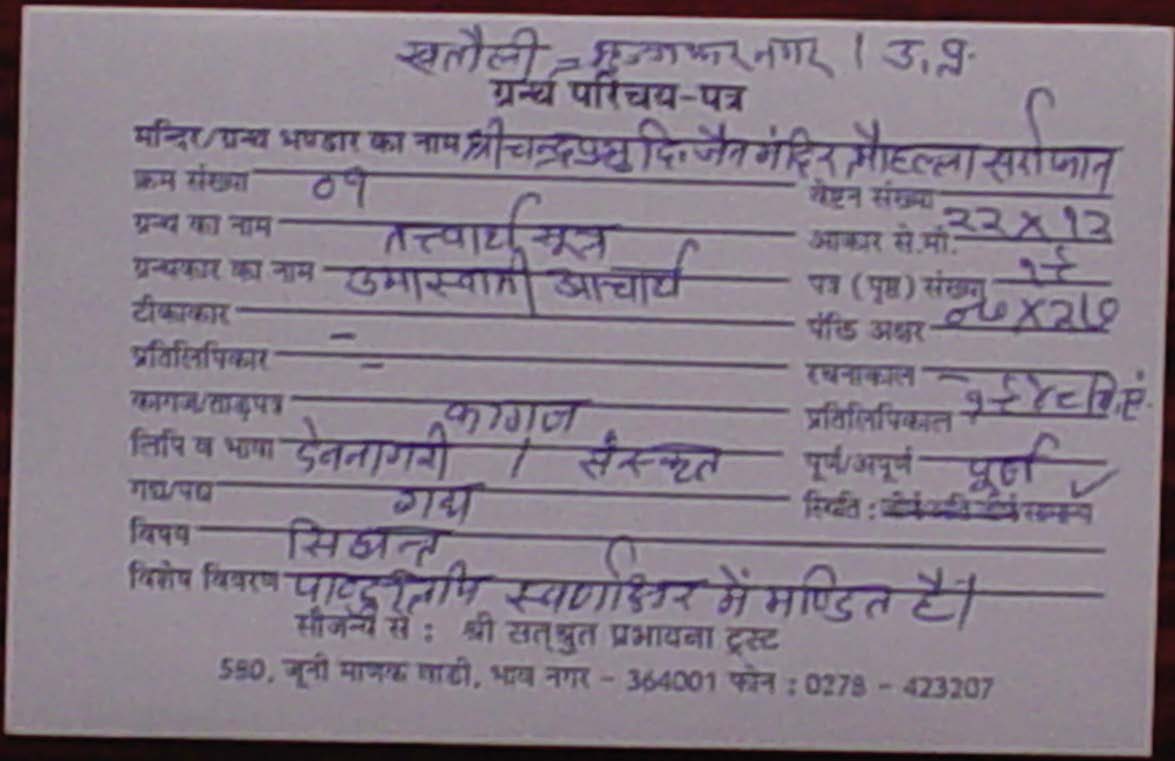 खतौली = मुजफ्फरनगर । उ.प्र.
ग्रन्थ परिचय-पत्र
मन्दिर/ग्रन्थ भण्डार का नाम श्री चन्द्रप्रभु दि. जैन मंदिर मौहल्ला सर्राफान
क्रम संख्या ०१ वेष्टन संख्या
ग्रन्थ का नाम तत्त्वार्थ सूत्र आकार से.मी. २२ X १२
ग्रन्थकार का नाम उमास्वामी आचार्य पत्र (पृष्ठ) संख्या
टीकाकार - पंक्ति अक्षर
प्रतिलिपिकार - रचनाकाल -
कागज/ताड़पत्र कागज प्रतिलिपिकाल १९४८ वि.सं.
लिपि व भाषा देवनागरी / संस्कृत पूर्ण/अपूर्ण पूर्ण
गद्य/पद्य गद्य स्थिति : सामान्य ✓
विषय सिद्धान्त
विशेष विवरण पाण्डुलिपि स्वर्णाक्षर में मण्डित है।
सौजन्य से : श्री सत्श्रुत प्रभावना ट्रस्ट
580, जूनी माणक वाडी, भाव नगर - 364001 फोन : 0278 - 423207